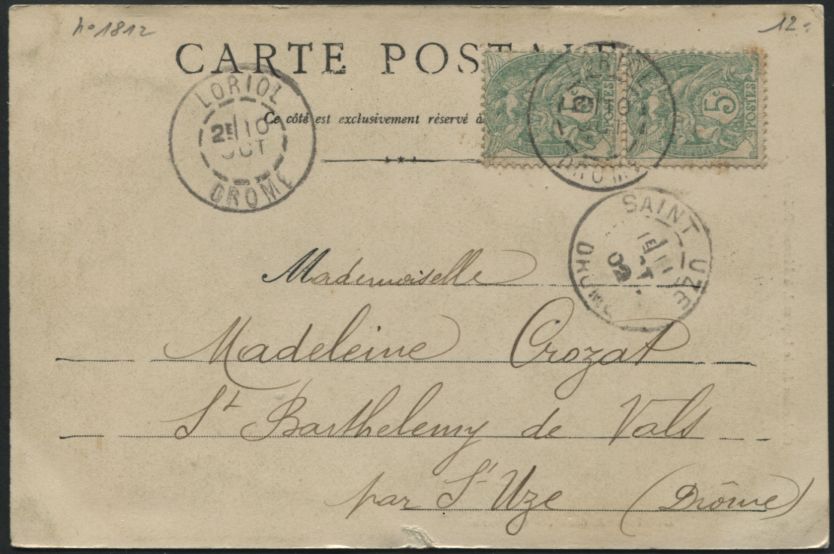 n° 1812
12=
CARTE POSTALE
Ce côté est exclusivement réservé à
LORIOL
2E 10
OCT
DROME
5c
POSTES
5c
POSTES
LORIOL
DROME
SAINT UZE
1E 11
02
DROME
Mademoiselle
Madeleine Crozat
St Barthelemy de Vals
par St Uze (Drôme)